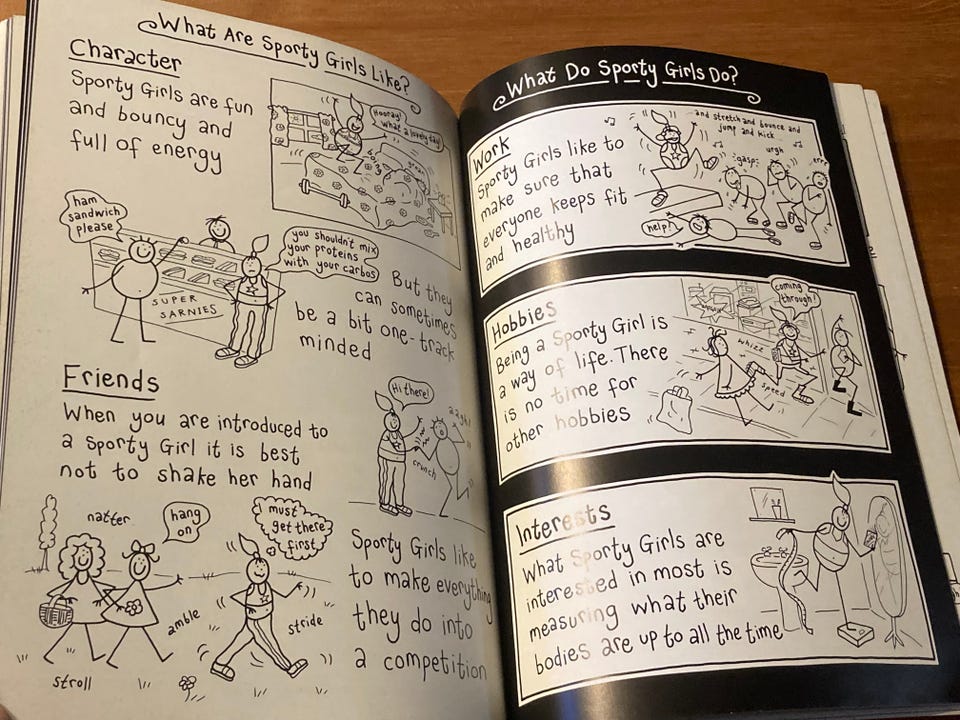 What Are Sporty Girls Like?
Character
Sporty Girls are fun
and bouncy and
full of energy
Hooray!
What a lovely day!
boing
groan
ham
sandwich
please
you shouldn't mix
your proteins
with your carbos
SUPER
SARNIES
But they
can sometimes
be a bit one-track
minded
Friends
When you are introduced to
a Sporty Girl it is best
not to shake her hand
Hi there!
aagh!
crunch
natter
hang
on
I must
get there
first
amble
stride
stroll
Sporty Girls like
to make everything
they do into
a competition
What Do Sporty Girls Do?
Work
Sporty Girls like to
make sure that
everyone keeps fit
and healthy
and stretch and bounce and
jump and kick
gasp
urgh
err
help!
Hobbies
Being a Sporty Girl is
a way of life. There
is no time for
other hobbies
coming
through!
whizz
speed
Interests
What Sporty Girls are
interested in most is
measuring what their
bodies are up to all the time